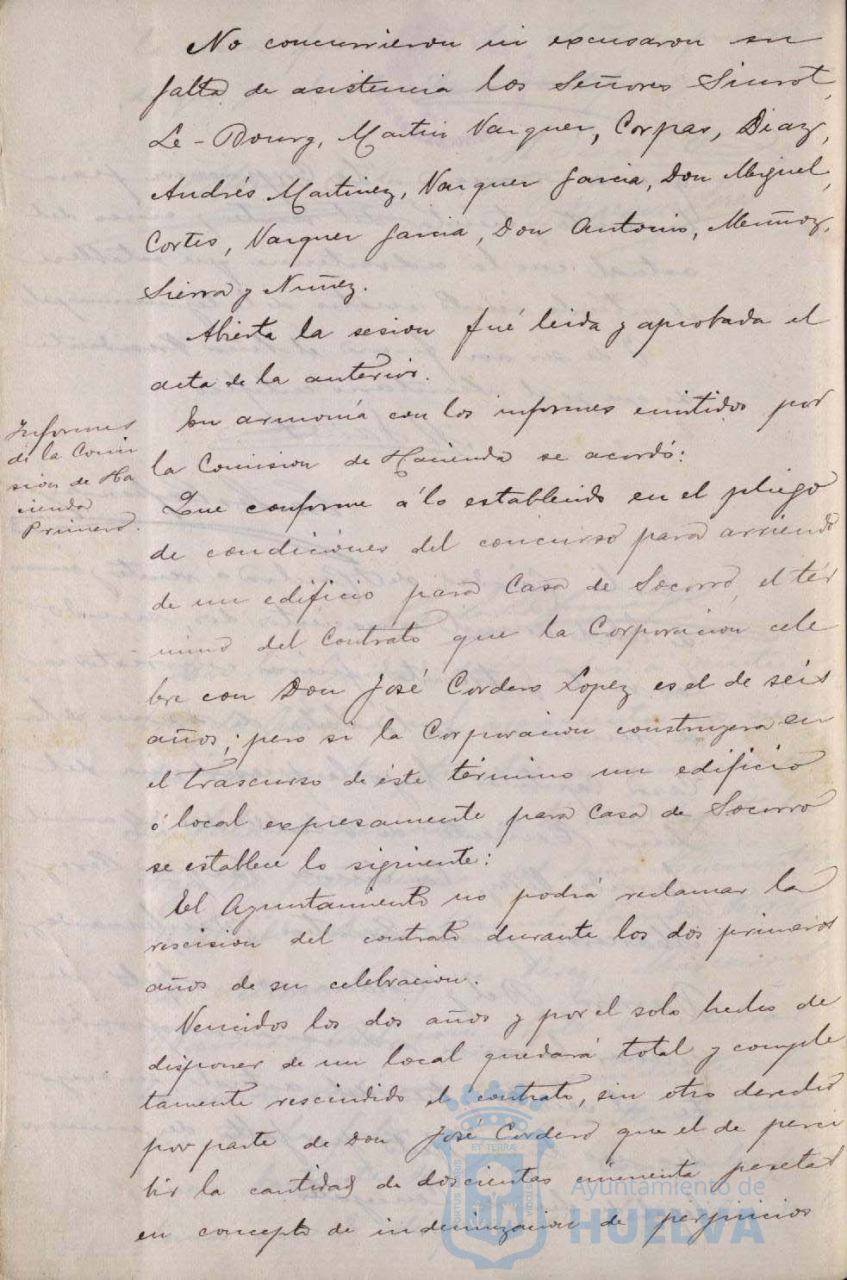 No concurrieron ni excusaron su
falta de asistencia los Señores Siurot,
Le-Bourg, Martin Vazquez, Corpas, Diaz,
Andrés Martinez, Vazquez Garcia, Don Miguel,
Cortes, Vazquez Garcia, Don Antonio, Muñoz,
Sierra y Nuñez.
Abierta la sesion fué leida y aprobada el
acta de la anterior.
Informes
de la Comi
sion de Ha
cienda
Primero.
En armonía con los informes emitidos por
la Comision de Hacienda se acordó:
Que conforme á lo establecido en el pliego
de condiciones del concurso para arriendo
de un edificio para Casa de Socorro, el tér
mino del Contrato que la Corporacion cele
bre con Don José Cordero Lopez es el de seis
años; pero si la Corporacion construyera en
el trascurso de éste término un edificio
ó local expresamente para Casa de Socorro
se establece lo siguiente:
El Ayuntamiento no podrá reclamar la
rescision del contrato durante los dos primeros
años de su celebracion.
Vencidos los dos años y por el solo hecho de
disponer de un local quedará total y comple
tamente rescindido el contrato, sin otro derecho
por parte de Don José Cordero que el de perci
bir la cantidad de doscientas cincuenta pesetas
en concepto de indemnizacion de perjuicios
Ayuntamiento de
HUELVA